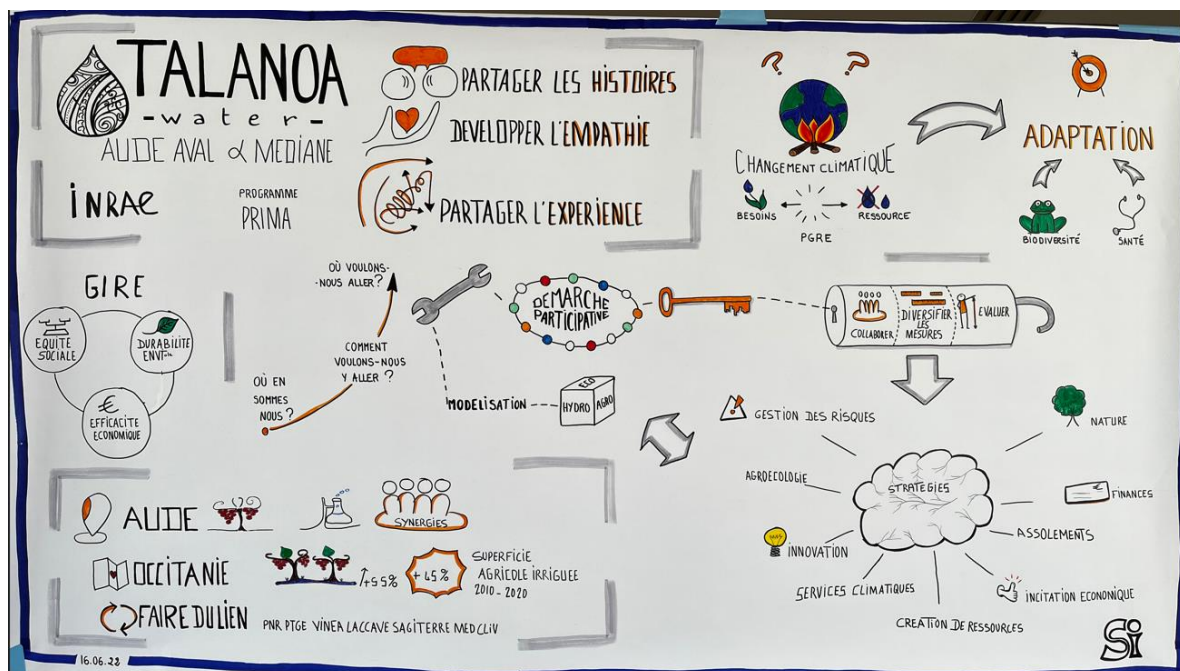 TALANOA
-water-
AUDE AVAL & MEDIANE
INRAE
PROGRAMME
PRIMA
PARTAGER LES HISTOIRES
DEVELOPPER L'EMPATHIE
PARTAGER L'EXPERIENCE
? ?
CHANGEMENT CLIMATIQUE
BESOINS
RESSOURCE
PGRE
ADAPTATION
BIODIVERSITÉ
SANTÉ
GIRE
EQUITÉ
SOCIALE
DURABILITÉ
€
EFFICACITÉ
ECONOMIQUE
OÙ EN
SOMMES
NOUS ?
COMMENT
VOULONS-NOUS
Y ALLER ?
OÙ VOULONS-
-NOUS ALLER ?
DEMARCHE
PARTICIPATIVE
MODELISATION
ECO
HYDRO
AGRO
COLLABORER
DIVERSIFIER
LES
MESURES
EVALUER
STRATEGIES
GESTION DES RISQUES
NATURE
AGROECOLOGIE
FINANCES
ASSOLEMENTS
INNOVATION
SERVICES CLIMATIQUES
INCITATION ECONOMIQUE
CREATION DE RESSOURCES
AUDE
SYNERGIES
OCCITANIE
+55%
+45%
SUPERFICIE
AGRICOLE IRRIGUEE
2010-2020
FAIRE DU LIEN
PNR PTGE VINEA LACCAVE SAGITERRE MEDCLIV
16.06.22
Si